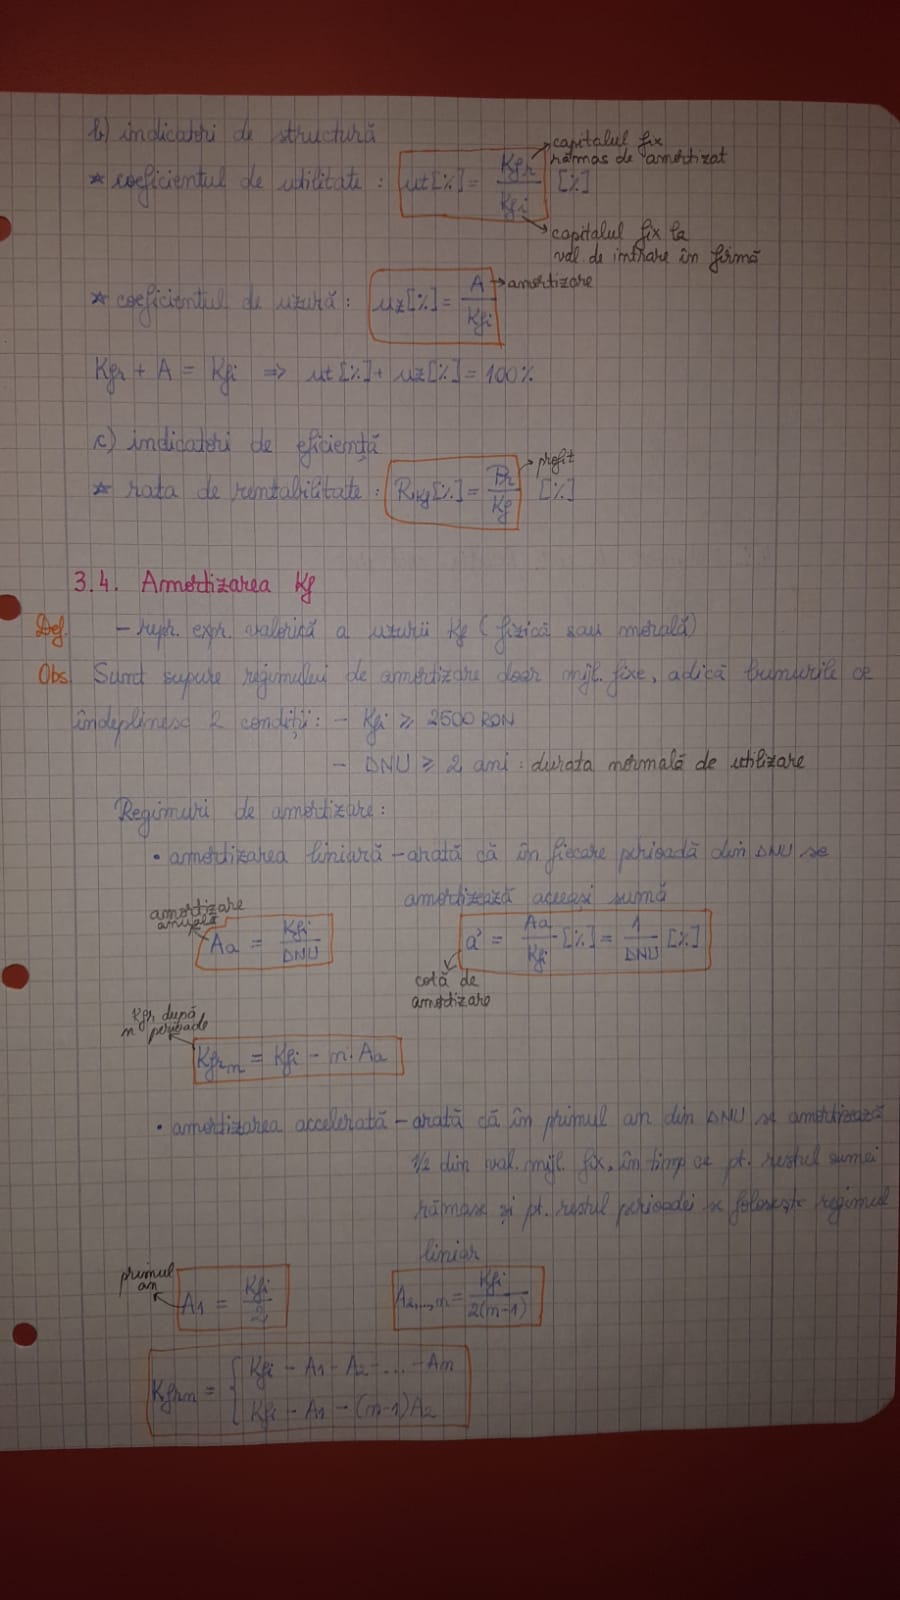 b) indicatori de structură
* coeficientul de utilitate : ut[%] = Kfr / Kfi [%]
capitalul fix rămas de amortizat
capitalul fix la val de intrare în firmă
* coeficientul de uzură : uz[%] = A / Kfi
amortizare
Kfr + A = Kfi => ut[%] + uz[%] = 100%
c) indicatori de eficiență
* rata de rentabilitate : RKf[%] = Pr / Kf [%]
profit
3.4. Amortizarea Kf
Def. - repr. expr. valorică a uzurii Kf (fizică sau morală)
Obs. Sunt supuse regimului de amortizare doar mijl. fixe, adică bunurile ce
îndeplinesc 2 condiții: - Kfi ≥ 2500 RON
- DNU ≥ 2 ani : durata normală de utilizare
Regimuri de amortizare:
• amortizarea liniară - arată că în fiecare perioadă din DNU se
amortizează aceeași sumă
amortizare anuală
Aa = Kfi / DNU
cotă de amortizare
a' = Aa / Kfi [%] = 1 / DNU [%]
Kfr după n perioade
Kfrn = Kfi - n·Aa
• amortizarea accelerată - arată că în primul an din DNU se amortizează
1/2 din val mijl. fix, în timp ce pt. restul sumei
rămase și pt. restul perioadei se folosește regimul
liniar
primul an
A1 = Kfi / 2
A2,...,n = Kfi / 2(n-1)
Kfrn = { Kfi - A1 - A2 - ... - An
Kfi - A1 - (n-1)A2